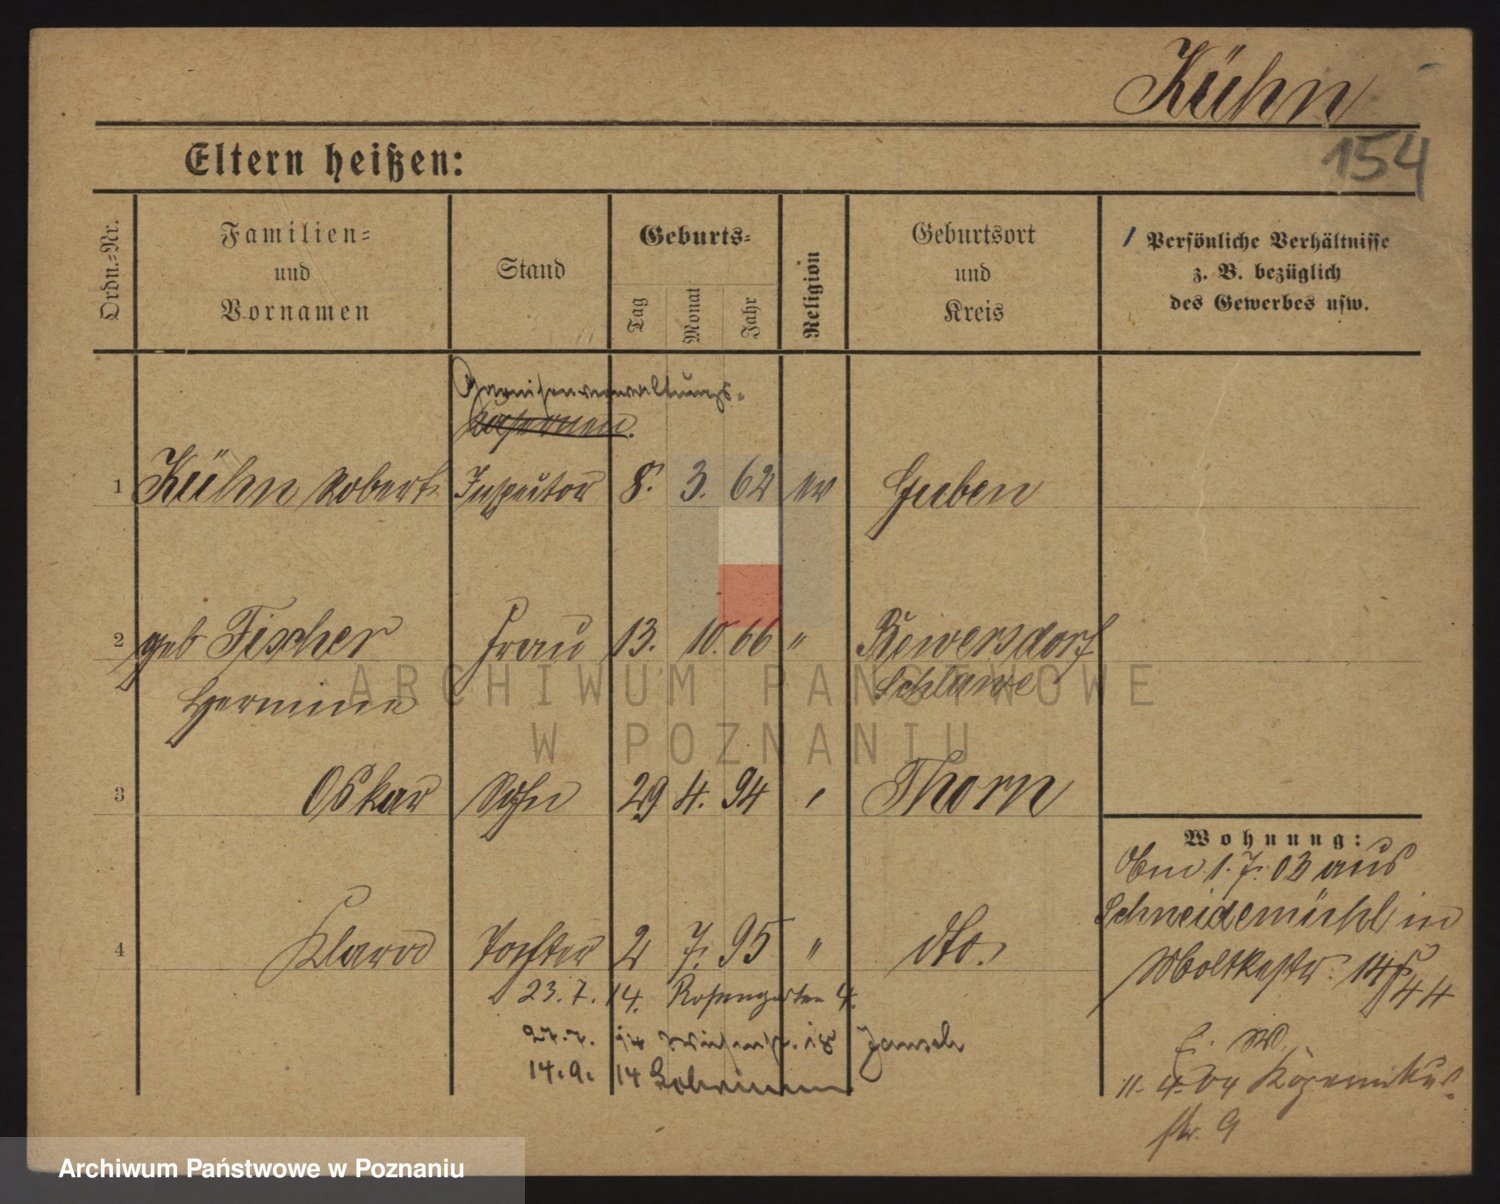 Kühn
154
Eltern heißen:
Ordn.=Nr.
Familien=
und
Vornamen
Stand
Geburts=
Tag
Monat
Jahr
Religion
Geburtsort
und
Kreis
Persönliche Verhältnisse
z. B. bezüglich
des Gewerbes usw.
Garnisonverwaltungs=
Kasernen
1 Kühn Robert Inspektor 8. 3. 62 ev Guben
2 geb Fischer Frau 13. 10. 66 " 
Hermine Schlawe
3 Oskar Sohn 29 4. 94 Thorn
4 Klara Tochter 2 7. 95 " dto.
Wohnung:
1. 7. 03 aus
Schneidemühl in
Moltkestr. 14
23. 7. 14. Rosengarten 4.
27. 7. 14 18
14. 9. 14
11. 4. 04 Kopernikus
str. 9
ARCHIWUM PAŃSTWOWE
W POZNANIU
Archiwum Państwowe w Poznaniu